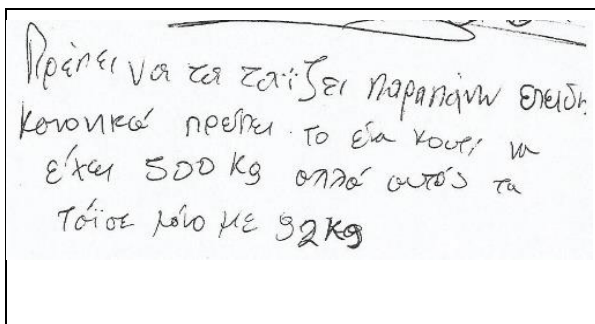 Πρέπει να τα ταΐζει παραπάνω επειδή
κανονικά πρέπει το ένα κουτί να
έχει 500 kg αλλά αυτός τα
τάϊσε μόνο με 92 kg